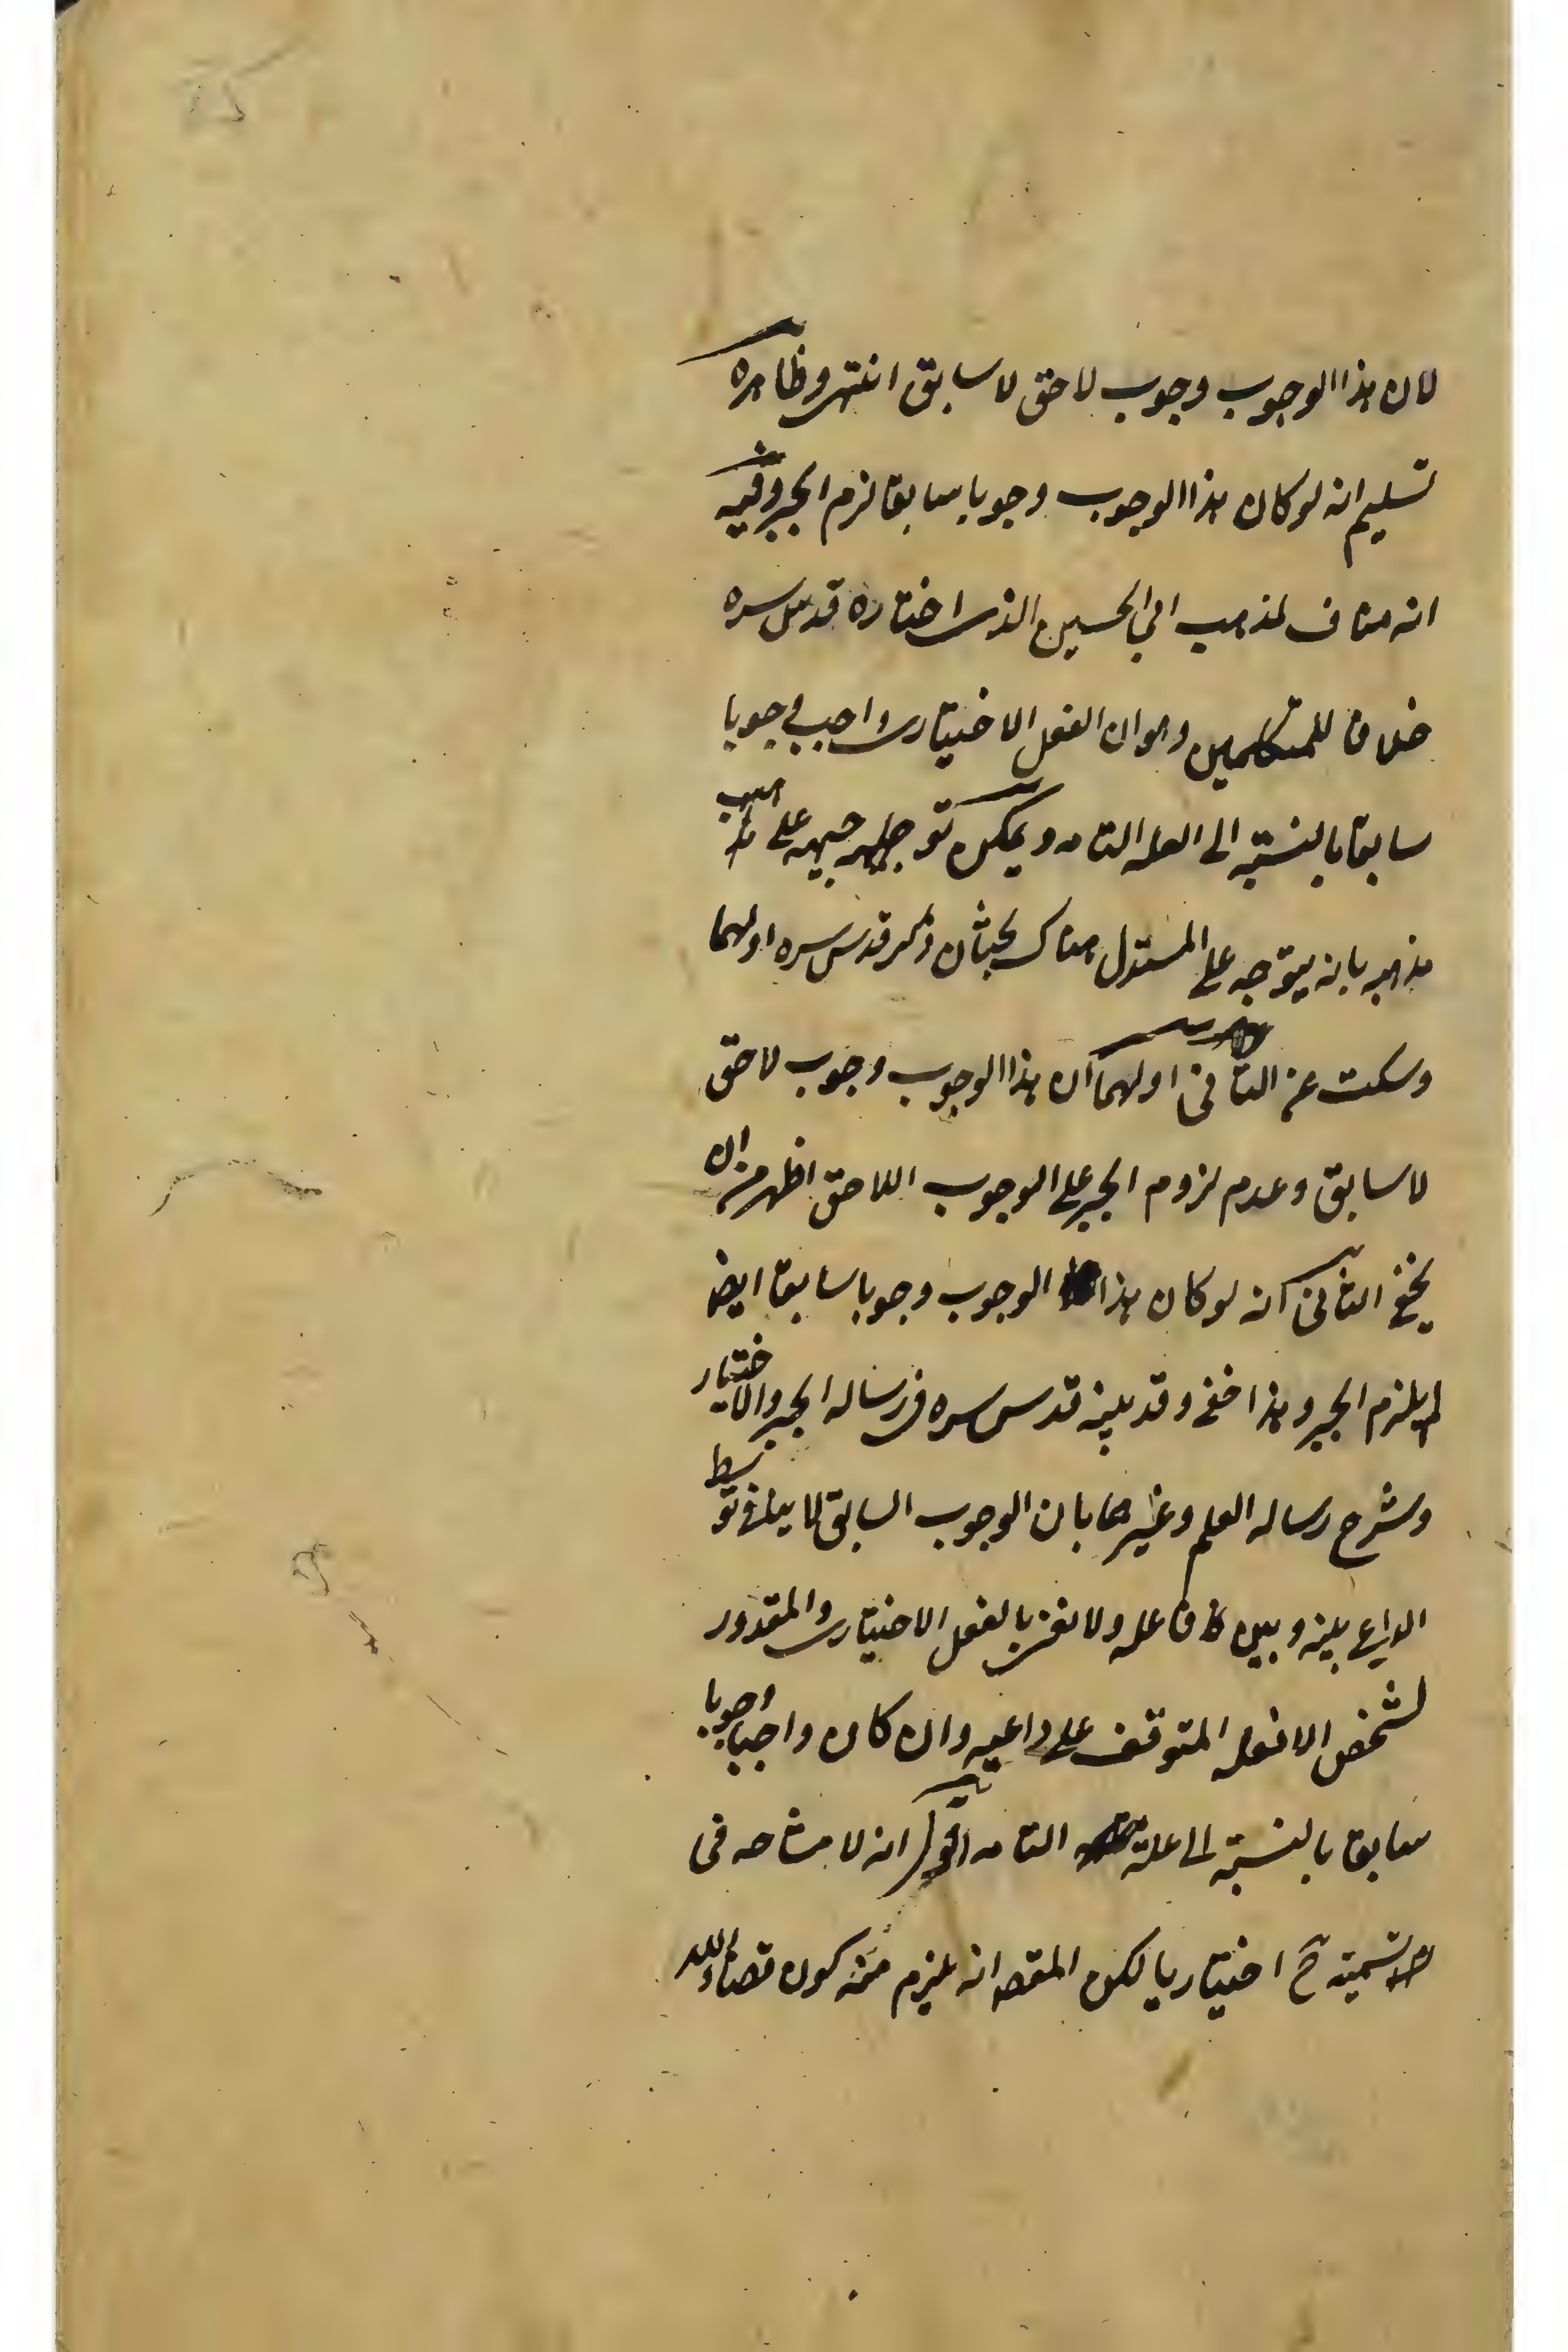 لان هذا الوجوب وجوب لاحق لا سابق انتهى وظاهره
تسليم انه لو كان هذا الوجوب وجوبا سابقا لزم الجبر وفيه
انه مناف لمذهب ابي الحسين الذي اختاره قدس سره
خلافا للمتكلمين وهو ان الفعل الاختياري واجب وجوبا
سابقا بالنسبة الى العلة التامه ويمكن توجيهه على
مذهبه بانه يتوجه على المستدل هناك بحثان ذكر قدس سره اولهما
وسكت عن الثاني اولهما ان هذا الوجوب وجوب لاحق
لا سابق وعدم لزوم الجبر على الوجوب اللاحق اظهر من ان
يخفى الثاني انه لو كان هذا الوجوب وجوبا سابقا ايضا
لم يلزم الجبر وهذا خفي وقد بينه قدس سره في رساله الجبر والاختيار
وشرح رساله العلم وغيرهما بان الوجوب السابق لا ينافي توسط
الداعي بينه وبين فاعله ولا نعني بالفعل الاختياري والمقدور
لشخص الا فعله المتوقف على داعيه وان كان واجبا وجوبا
سابقا بالنسبة الى علته التامه اقول انه لا مشاحه في
تسميته ح اختياريا لكن المقص انه يلزم منه كون قضاء الله